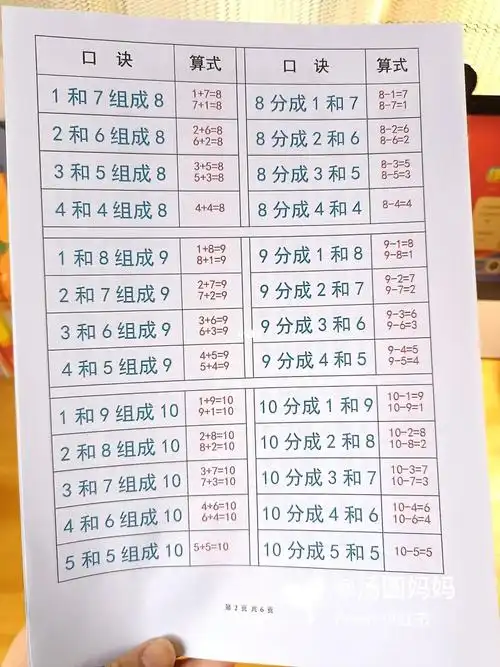 口 诀 算式 口 诀 算式
1 和 7 组成 8 1+7=8 8 分成 1 和 7 8-1=7
7+1=8 8-7=1
2 和 6 组成 8 2+6=8 8 分成 2 和 6 8-2=6
6+2=8 8-6=2
3 和 5 组成 8 3+5=8 8 分成 3 和 5 8-3=5
5+3=8 8-5=3
4 和 4 组成 8 4+4=8 8 分成 4 和 4 8-4=4
1 和 8 组成 9 1+8=9 9 分成 1 和 8 9-1=8
8+1=9 9-8=1
2 和 7 组成 9 2+7=9 9 分成 2 和 7 9-2=7
7+2=9 9-7=2
3 和 6 组成 9 3+6=9 9 分成 3 和 6 9-3=6
6+3=9 9-6=3
4 和 5 组成 9 4+5=9 9 分成 4 和 5 9-4=5
5+4=9 9-5=4
1 和 9 组成 10 1+9=10 10 分成 1 和 9 10-1=9
9+1=10 10-9=1
2 和 8 组成 10 2+8=10 10 分成 2 和 8 10-2=8
8+2=10 10-8=2
3 和 7 组成 10 3+7=10 10 分成 3 和 7 10-3=7
7+3=10 10-7=3
4 和 6 组成 10 4+6=10 10 分成 4 和 6 10-4=6
6+4=10 10-6=4
5 和 5 组成 10 5+5=10 10 分成 5 和 5 10-5=5
第 2 页 共 6 页
圆妈妈